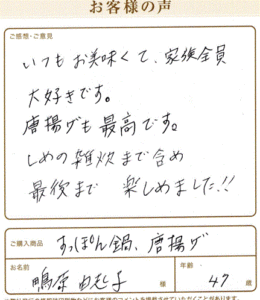 お客様の声
ご感想・ご意見
いつもお美味くて、家族全員
大好きです。
唐揚げも最高です。
しめの雑炊まで含め
最後まで 楽しめました!!
ご購入商品 すっぽん鍋、唐揚げ
お名前 年齢
鴨原 由志子 様 47 歳